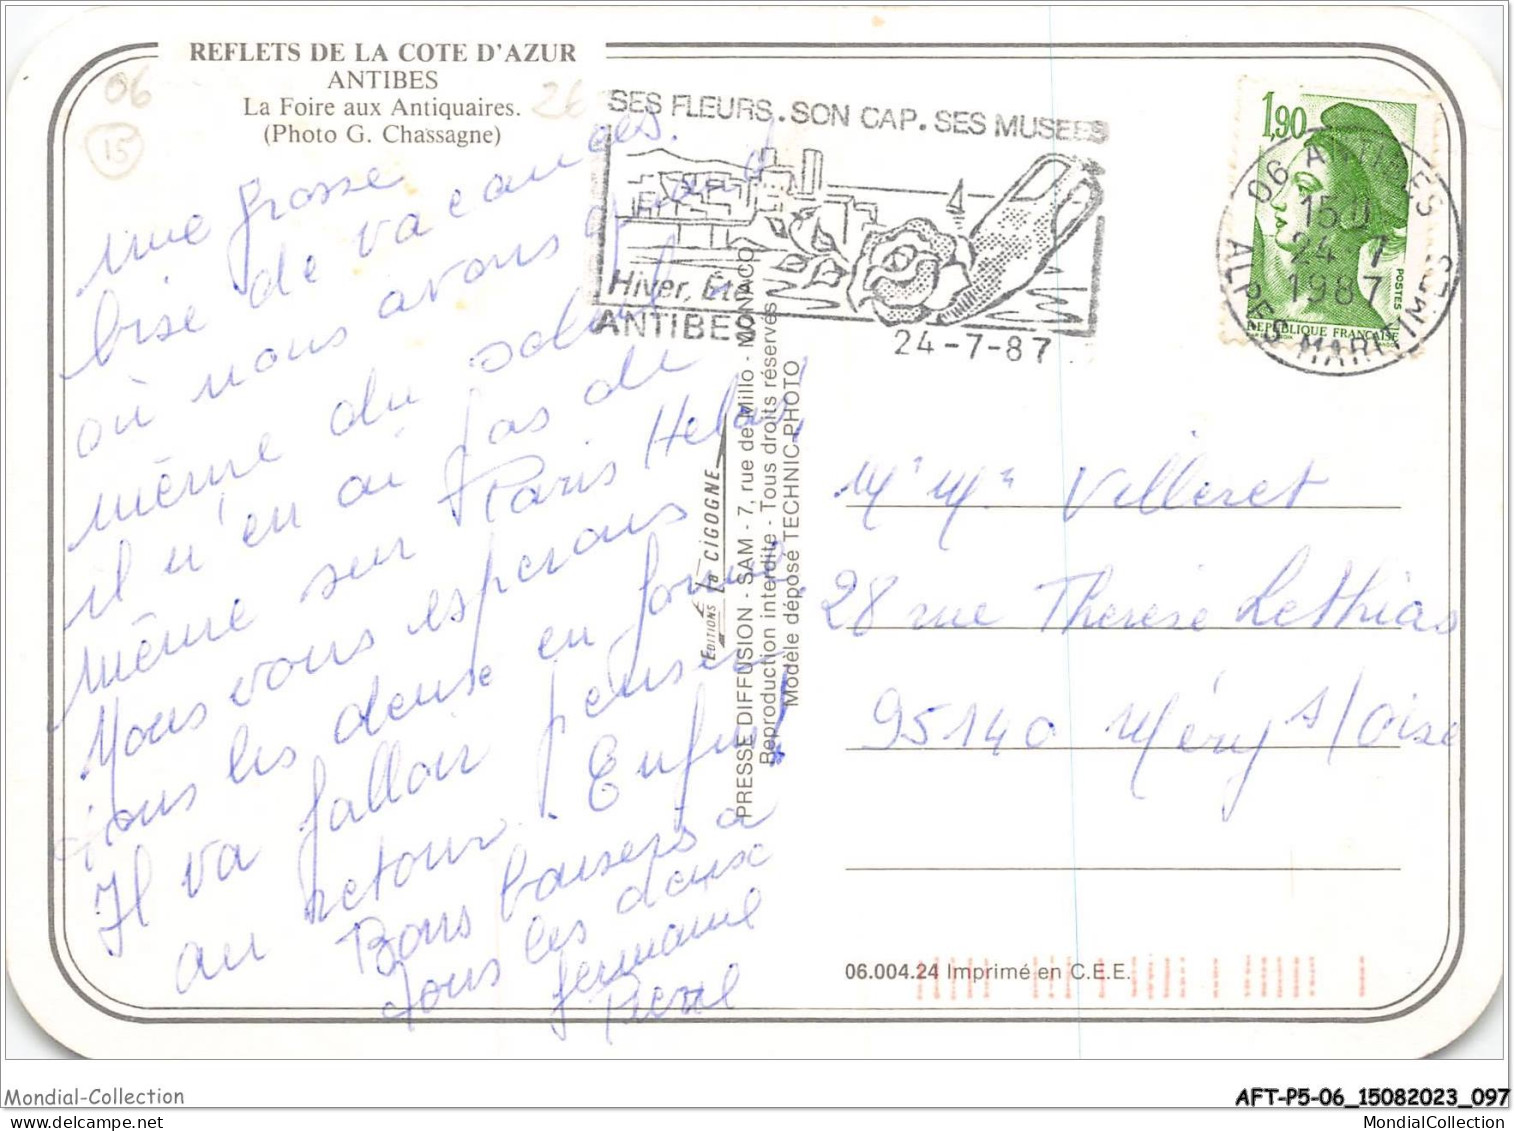 REFLETS DE LA COTE D'AZUR
ANTIBES
La Foire aux Antiquaires.
(Photo G. Chassagne)
06
15
26
une grosse
bise de vacances.
où nous avons quand
même du soleil
il n'en a pas de
même sur Paris Helas!
Nous vous esperons
tous les deuse en forme
Il va falloir penser
au retour. Enfin!
Bons baisers à
tous les deux
Germaine
Pierre
SES FLEURS. SON CAP. SES MUSEES
Hiver, Été
ANTIBES
24-7-87
1,90
POSTES
REPUBLIQUE FRANÇAISE
06 ANTIBES
15H
24-7
1987
ALPES MARITIMES
EDITIONS La CIGOGNE
PRESSE DIFFUSION - SAM - 7, rue de Millo - MONACO
Reproduction interdite - Tous droits réservés
Modèle déposé TECHNIC PHOTO
Mr Me Villeret
28 rue Therese Lethias
95140 Méry s/Oise
06.004.24 Imprimé en C.E.E.
Mondial-Collection
AFT-P5-06_15082023_097
MondialCollection